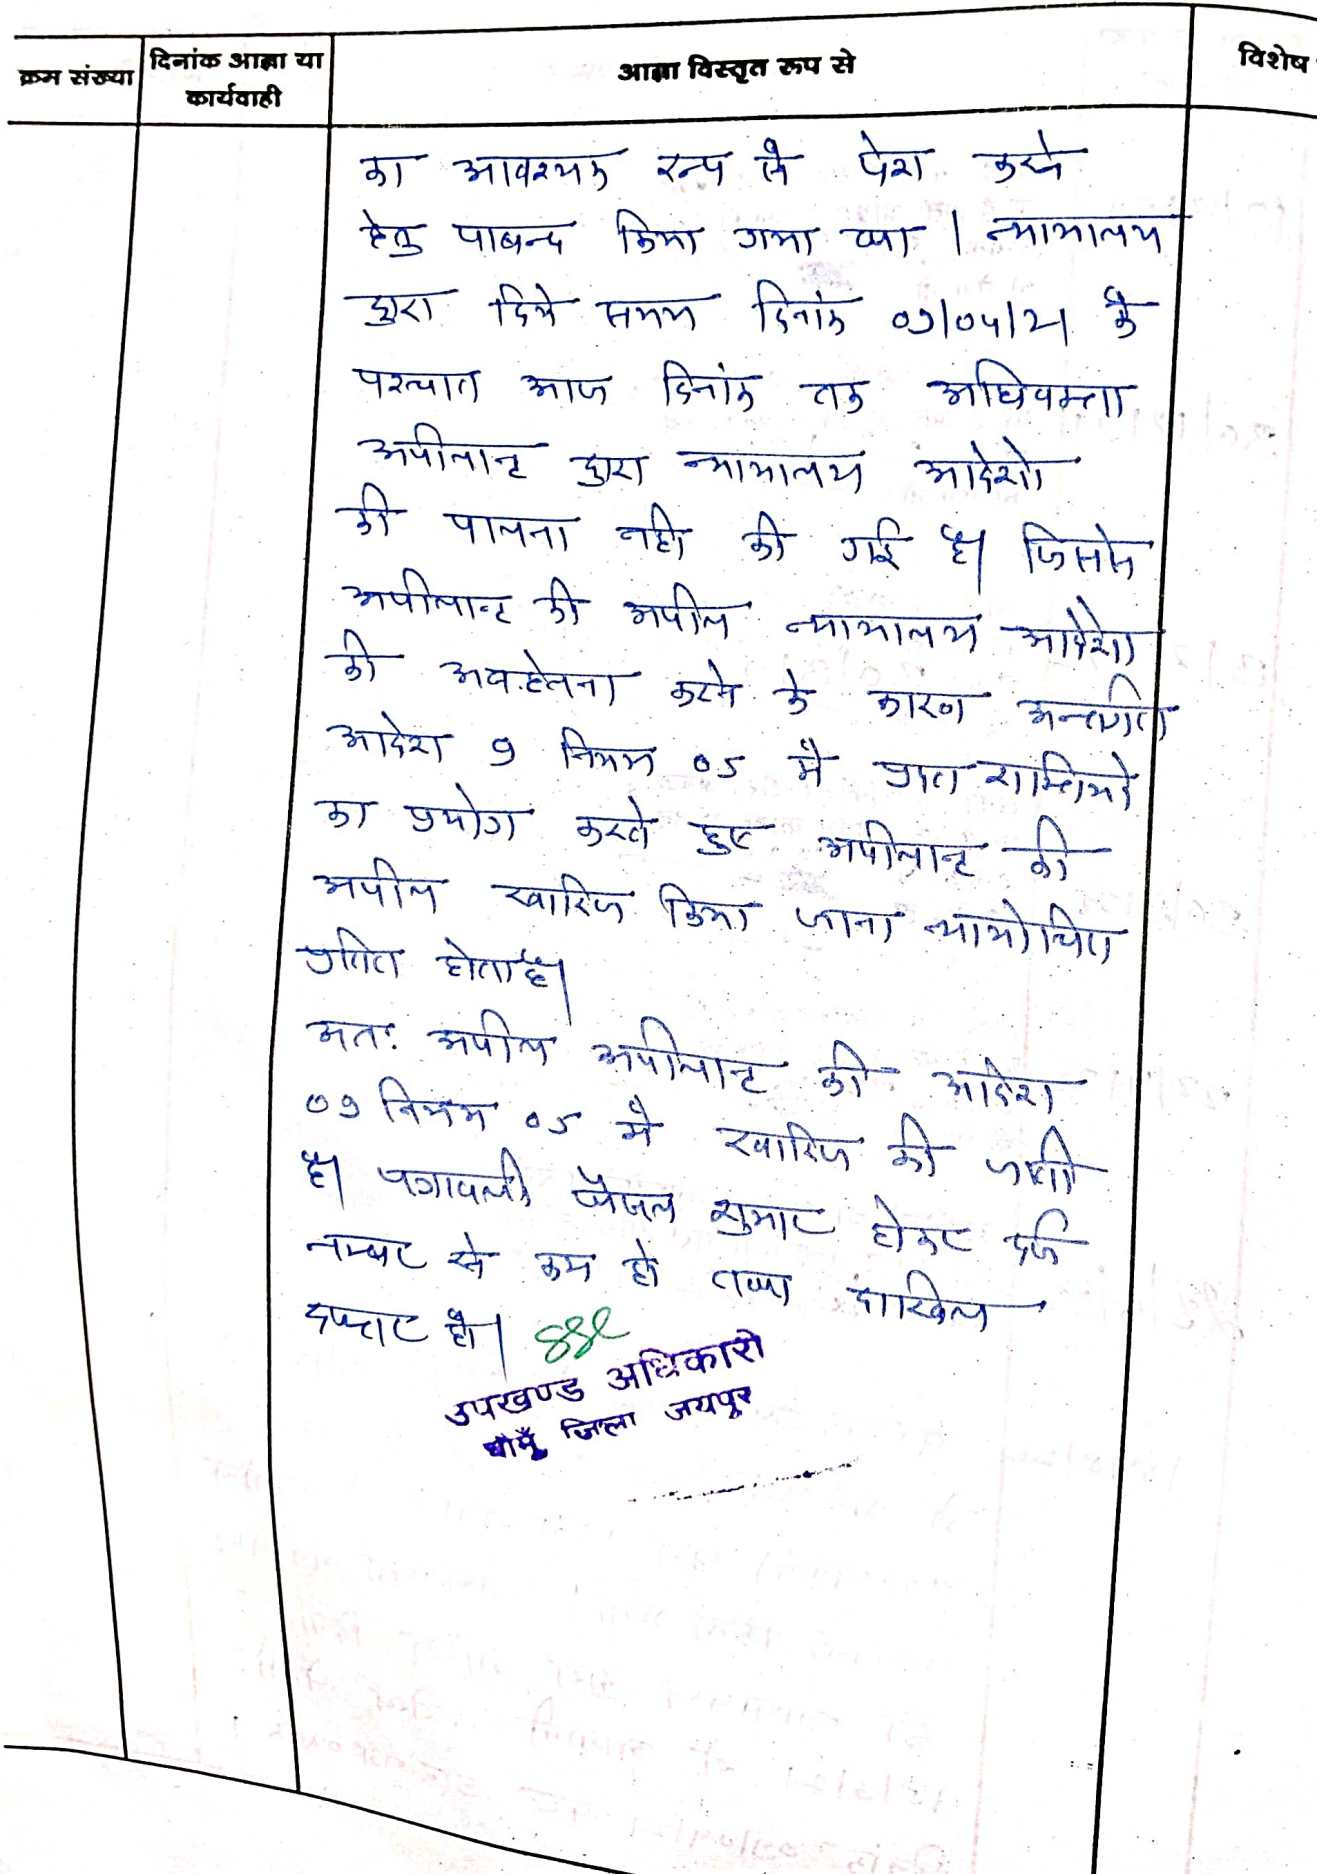 क्रम संख्या
दिनांक आज्ञा या
कार्यवाही
आज्ञा विस्तृत रूप से
विशेष
का आवश्यक रूप से पेश करने
हेतु पाबन्द किया गया था । न्यायालय
द्वारा दिये समय दिनांक 07/04/21 के
पश्चात आज दिनांक तक अधिवक्ता
अपीलान्ट द्वारा न्यायालय आदेशो
की पालना नही की गई है। जिससे
अपीलान्ट की अपील न्यायालय आदेशो
की अवहेलना करने के कारण अन्तर्गत
आदेश 9 नियम 05 मे प्रदत शक्तियो
का प्रयोग करते हुए अपीलान्ट की
अपील खारिज किया जाना न्यायोचित
प्रतित होता है।
अतः अपील अपीलान्ट की आदेश
09 नियम 05 मे खारिज की जाती
है। पत्रावली फैसल शुमार होकर दर्ज
नम्बर से कम हो तथा दाखिल
दफ्तर हो।
उपखण्ड अधिकारी
चौमूँ जिला जयपुर